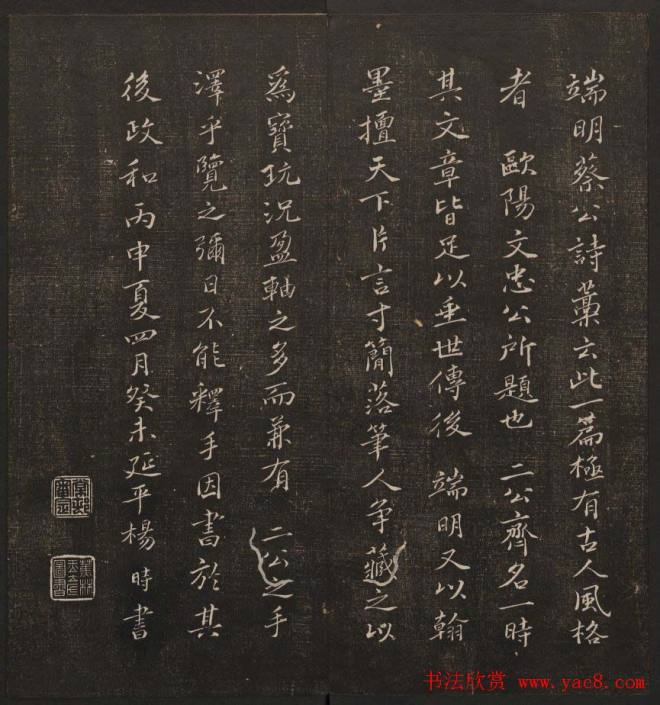 端明蔡公詩藁云此一篇極有古人風格
者 歐陽文忠公所題也 二公齊名一時
其文章皆足以垂世傳後 端明又以翰
墨擅天下片言寸簡落筆人争藏之以
為寶玩況盈軸之多而兼有 二公之手
澤乎覽之彌日不能釋手因書於其
後政和丙申夏四月癸未延平楊 時書
书法欣赏 www.yac8.com